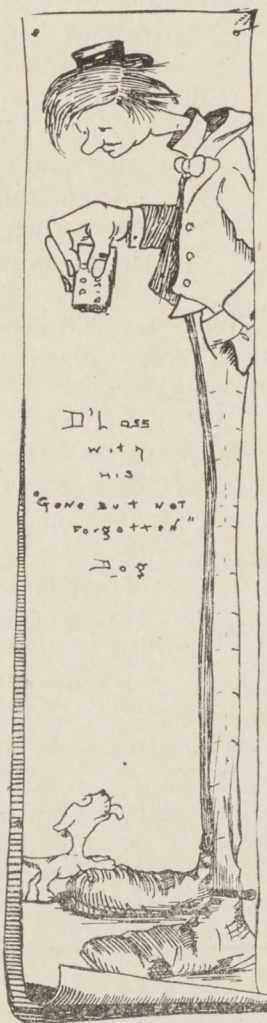 DOG
BISC
D'Loss
with
HIS
"GONE BUT NOT
Forgotten"
Dog